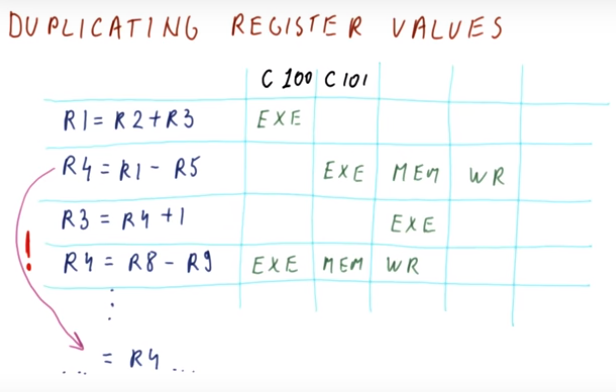 DUPLICATING REGISTER VALUES
C 100 C 101
R1 = R2 + R3 EXE
R4 = R1 - R5 EXE MEM WR
R3 = R4 + 1 EXE
! R4 = R8 - R9 EXE MEM WR
⋮
... = R4 ...